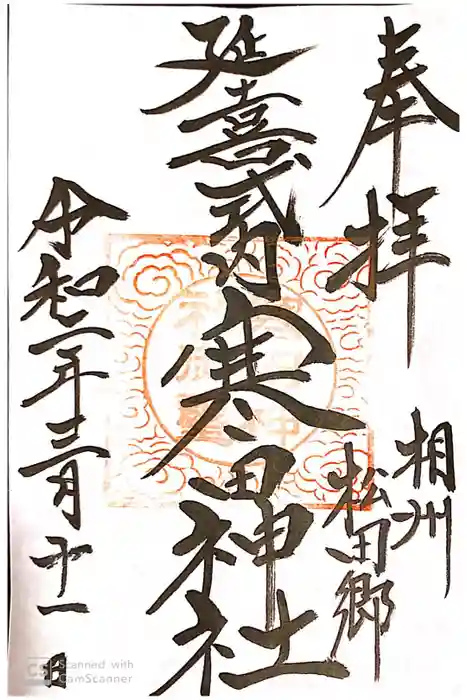 奉拝
相州
松田郷
延喜式内 寒田神社
令和二年十二月十一日
CS Scanned with
CamScanner